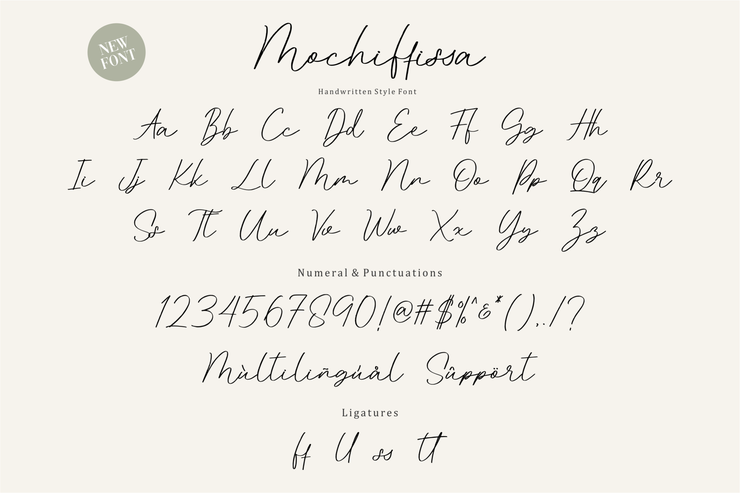 NEW
FONT
Mochiffissa
Handwritten Style Font
Aa Bb Cc Dd Ee Ff Gg Hh
Ii Jj Kk Ll Mm Nn Oo Pp Qq Rr
Ss Tt Uu Vv Ww Xx Yy Zz
Numeral & Punctuations
1234567890!@#$%^&*(),./?
Mùltilíñgúål Sûppört
Ligatures
ff ll ss tt